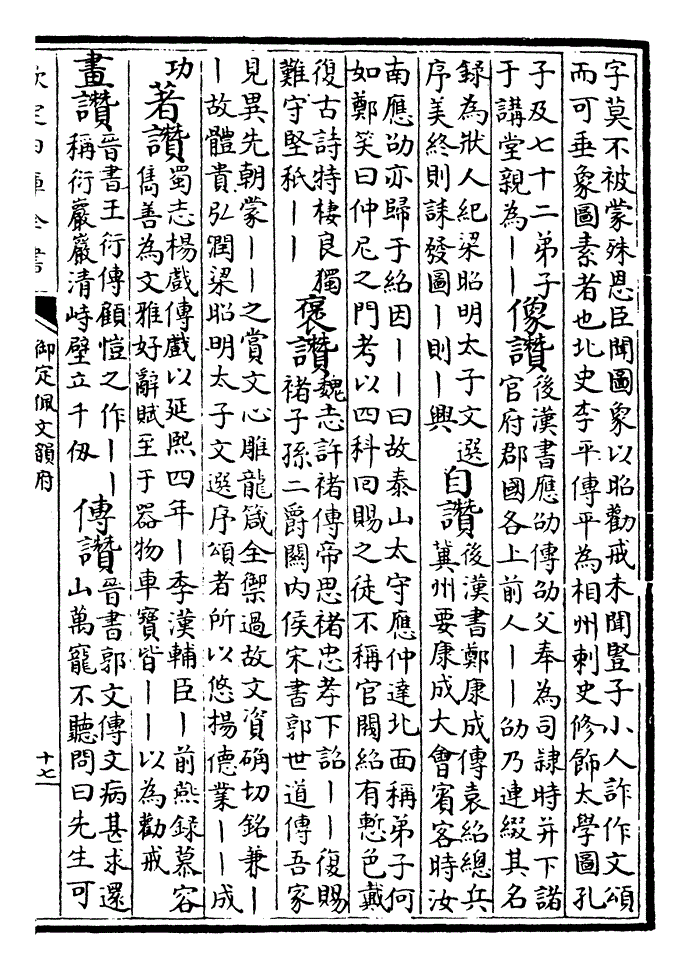 字莫不被蒙殊恩臣聞圖象以昭勸戒未聞豎子小人詐作文頌
而可垂象圖素者也北史李平傳平為相州刺史修飾太學圖孔
子及七十二弟子
于講堂親為丨丨
像讚
後漢書應劭傳劭父奉為司隸時并下諸
官府郡國各上前人丨丨劭乃連綴其名
錄為狀人紀梁昭明太子文選
序美終則誄發圖丨則丨興
自讚
後漢書鄭康成傳袁紹總兵
冀州要康成大會賓客時汝
南應劭亦歸于紹因丨丨曰故泰山太守應仲達北面稱弟子何
如鄭笑曰仲尼之門考以四科回賜之徒不稱官閥紹有慙色戴
復古詩特棲良獨
難守堅秖丨丨
褒讚
魏志許褚傳帝思褚忠孝下詔丨丨復賜
褚子孫二爵關内侯宋書郭世道傳吾家
見異先朝蒙丨丨之賞文心雕龍箴全禦過故文資确切銘兼丨
丨故體貴弘潤梁昭明太子文選序頌者所以悠揚德業丨丨成
功
著讚
蜀志楊戲傳戲以延熙四年丨季漢輔臣丨前燕録慕容
儁善為文雅好辭賦至于器物車寳皆丨丨以為勸戒
畫讚
晉書王衍傳顧愷之作丨丨
稱衍巖巖清峙壁立千仭
傳讚
晉書郭文傳文病甚求還
山萬寵不聽問曰先生可
欽定四庫全書
御定佩文韻府
十七